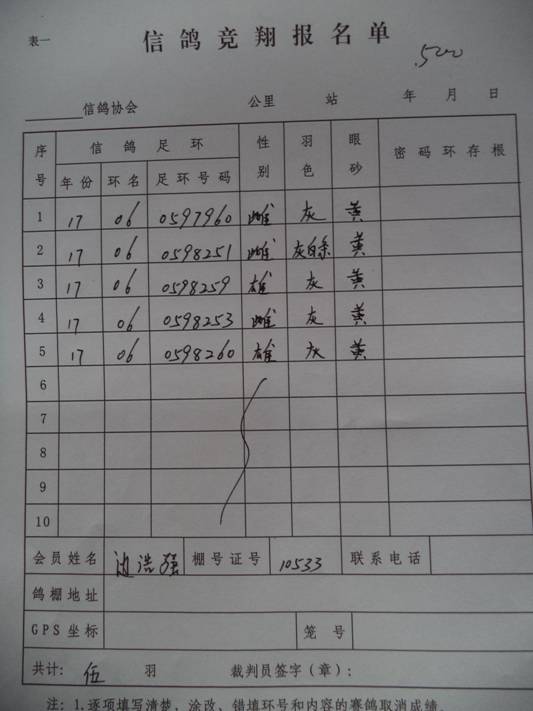 表一
信鸽竞翔报名单
500
信鸽协会 公里 站 年 月 日
序号 信鸽足环 性别 羽色 眼砂 密码环存根
年份 环名 足环号码
1 17 06 0597960 雌 灰 黄
2 17 06 0598251 雌 灰白条 黄
3 17 06 0598259 雄 灰 黄
4 17 06 0598253 雌 灰 黄
5 17 06 0598260 雄 灰 黄
6
7
8
9
10
会员姓名 边浩强 棚号证号 10533 联系电话
鸽棚地址
GPS坐标 笼号
共计: 伍 羽 裁判员签字(章):
注: 1.逐项填写清楚, 涂改、错填环号和内容的赛鸽取消成绩.